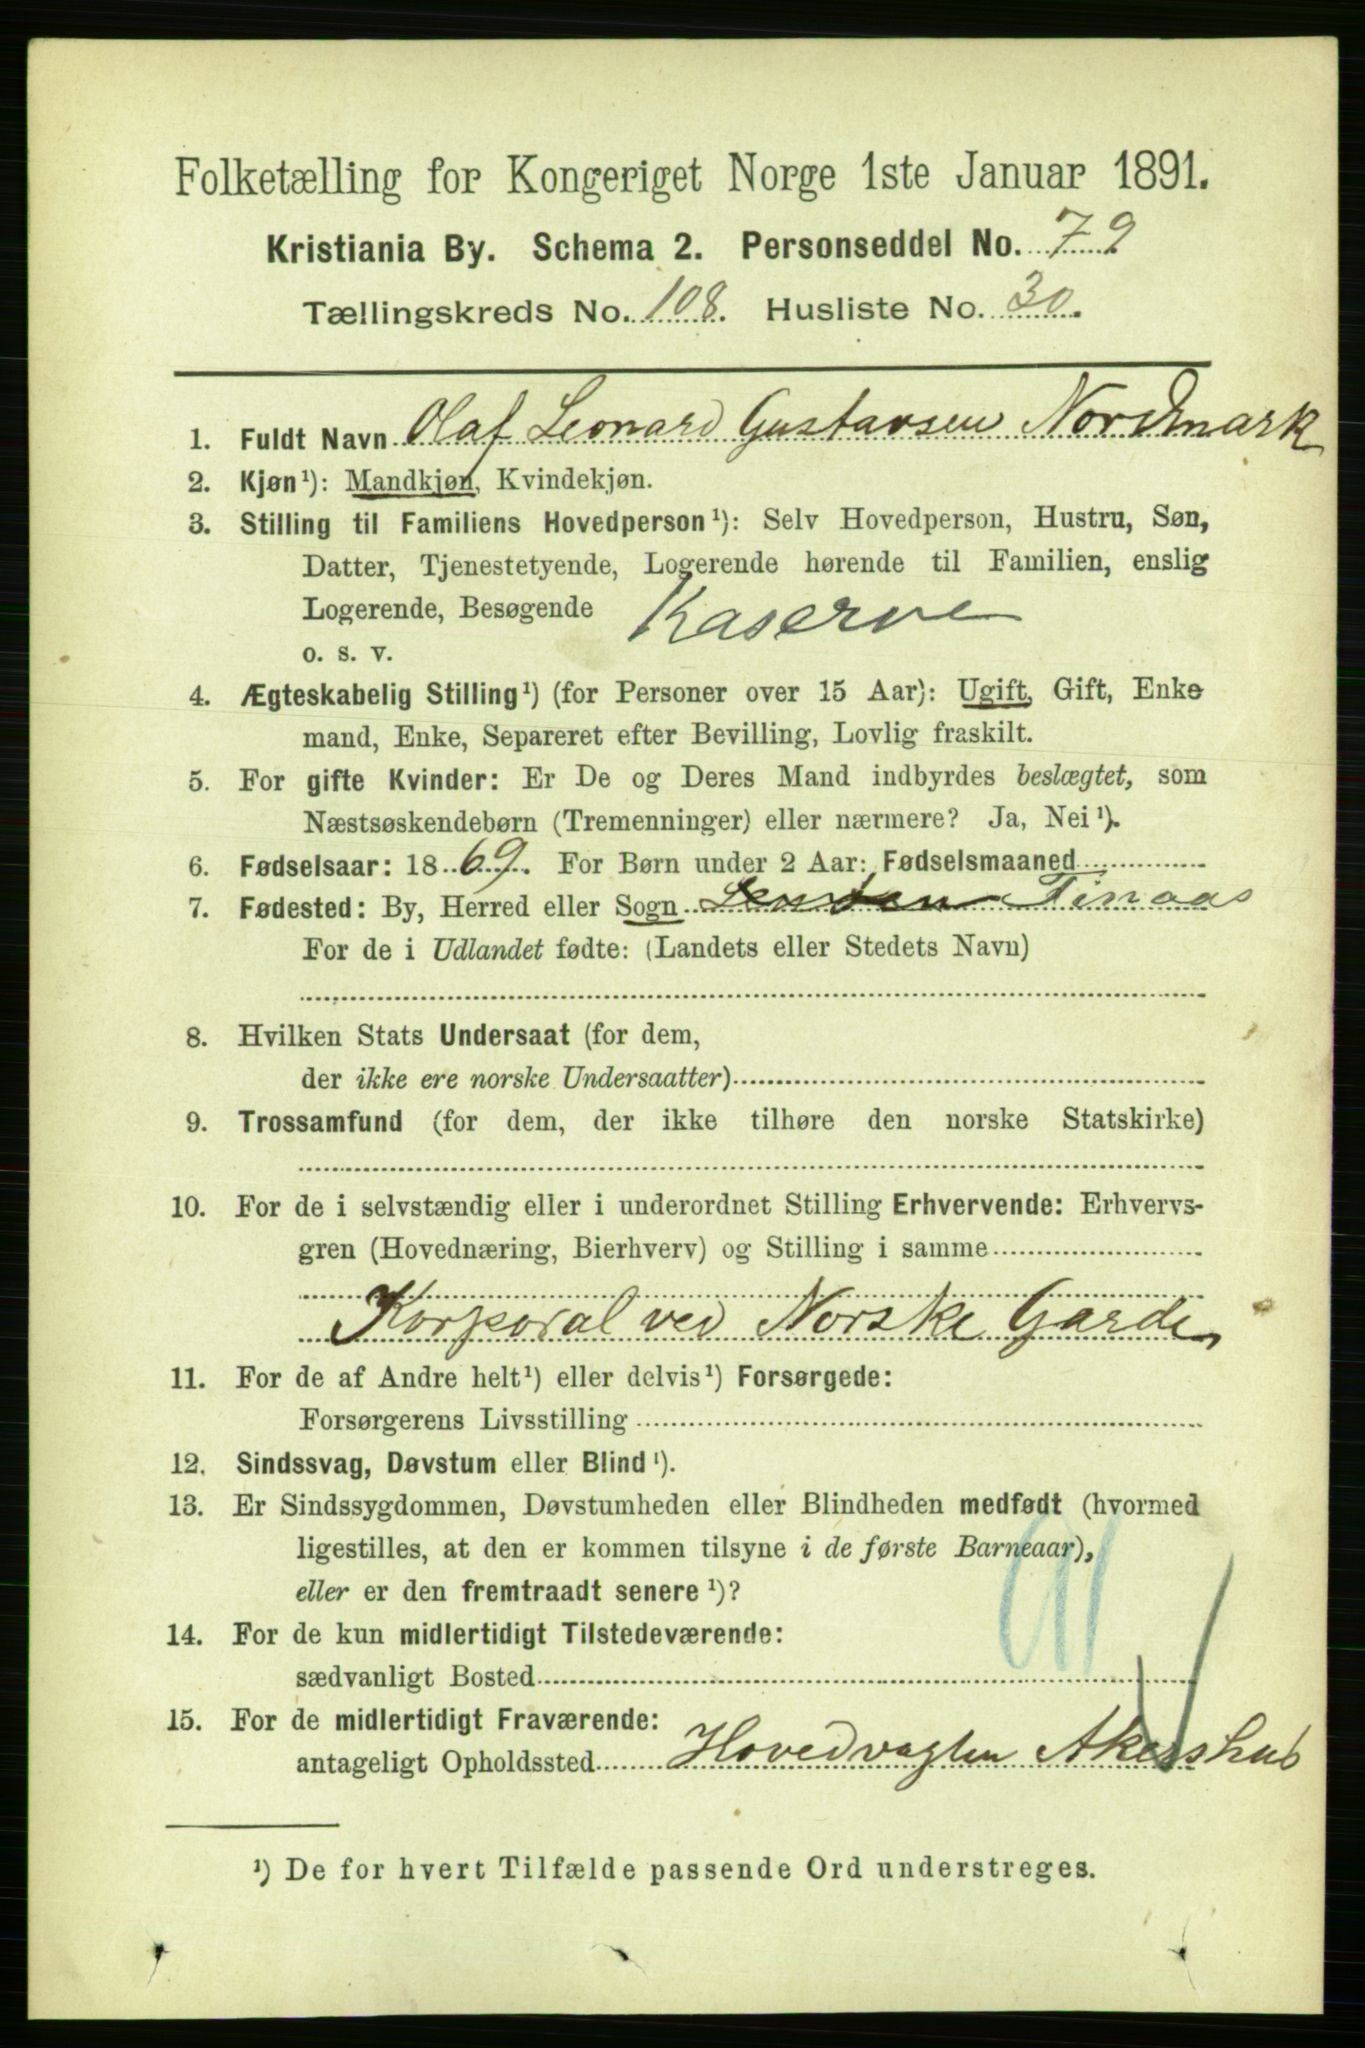 Folketælling for Kongeriget Norge 1ste Januar 1891.
Kristiania By. Schema 2. Personseddel No. 79
Tællingskreds No. 108. Husliste No. 30.
1. Fuldt Navn Olaf Leonard Gustavsen Nordmark
2. Kjøn¹): Mandkjøn, Kvindekjøn.
3. Stilling til Familiens Hovedperson¹): Selv Hovedperson, Hustru, Søn,
Datter, Tjenestetyende, Logerende hørende til Familien, enslig
Logerende, Besøgende Kaserne
o. s. v.
4. Ægteskabelig Stilling¹) (for Personer over 15 Aar): Ugift, Gift, Enke
mand, Enke, Separeret efter Bevilling, Lovlig fraskilt.
5. For gifte Kvinder: Er De og Deres Mand indbyrdes beslægtet, som
Næstsøskendebørn (Tremenninger) eller nærmere? Ja, Nei¹).
6. Fødselsaar: 1869. For Børn under 2 Aar: Fødselsmaaned
7. Fødested: By, Herred eller Sogn Finaas
For de i Udlandet fødte: (Landets eller Stedets Navn)
8. Hvilken Stats Undersaat (for dem,
der ikke ere norske Undersaatter)
9. Trossamfund (for dem, der ikke tilhøre den norske Statskirke)
10. For de i selvstændig eller i underordnet Stilling Erhvervende: Erhvervs-
gren (Hovednæring, Bierhverv) og Stilling i samme
Korporal ved Norske Garde,
11. For de af Andre helt¹) eller delvis¹) Forsørgede:
Forsørgerens Livsstilling
12. Sindssvag, Døvstum eller Blind¹).
13. Er Sindssygdommen, Døvstumheden eller Blindheden medfødt (hvormed
ligestilles, at den er kommen tilsyne i de første Barneaar),
eller er den fremtraadt senere¹)?
14. For de kun midlertidigt Tilstedeværende:
sædvanligt Bosted
15. For de midlertidigt Fraværende:
antageligt Opholdssted Hovedvagten Akershus
¹) De for hvert Tilfælde passende Ord understreges.